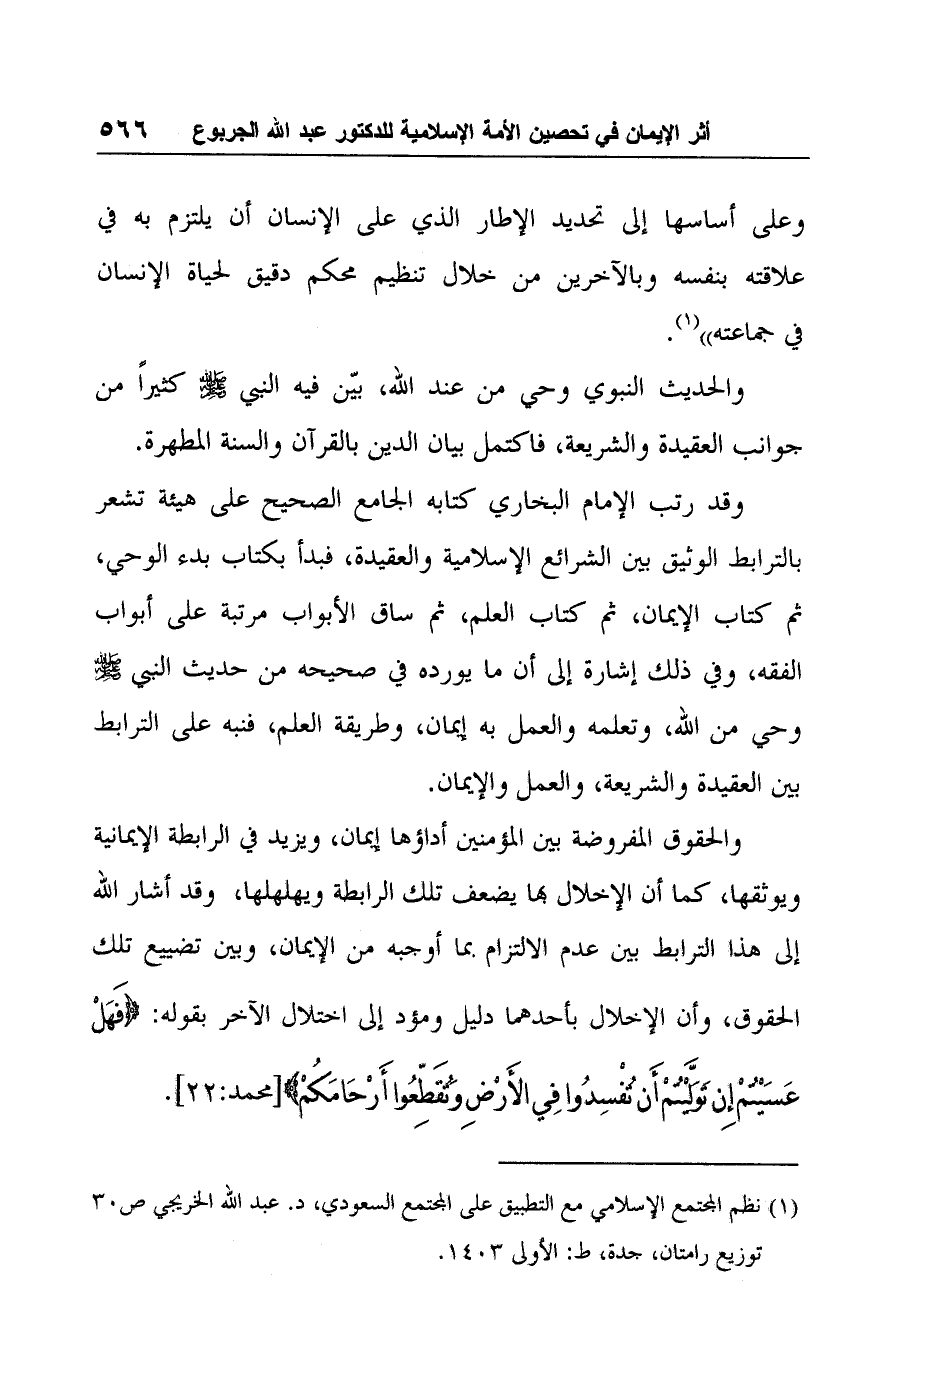 أثر الإيمان في تحصين الأمة الإسلامية للدكتور عبد الله الجربوع ٥٦٦
وعلى أساسها إلى تحديد الإطار الذي على الإنسان أن يلتزم به في
علاقته بنفسه وبالآخرين من خلال تنظيم محكم دقيق لحياة الإنسان
في جماعته))(١).
والحديث النبوي وحي من عند الله، بيّن فيه النبي ﷺ كثيراً من
جوانب العقيدة والشريعة، فاكتمل بيان الدين بالقرآن والسنة المطهرة.
وقد رتب الإمام البخاري كتابه الجامع الصحيح على هيئة تشعر
بالترابط الوثيق بين الشرائع الإسلامية والعقيدة، فبدأ بكتاب بدء الوحي،
ثم كتاب الإيمان، ثم كتاب العلم، ثم ساق الأبواب مرتبة على أبواب
الفقه، وفي ذلك إشارة إلى أن ما يورده في صحيحه من حديث النبي ﷺ
وحي من الله، وتعلمه والعمل به إيمان، وطريقة العلم، فنبه على الترابط
بين العقيدة والشريعة، والعمل والإيمان.
والحقوق المفروضة بين المؤمنين أداؤها إيمان، ويزيد في الرابطة الإيمانية
ويوثقها، كما أن الإخلال بها يضعف تلك الرابطة ويهلهلها، وقد أشار الله
إلى هذا الترابط بين عدم الالتزام بما أوجبه من الإيمان، وبين تضييع تلك
الحقوق، وأن الإخلال بأحدهما دليل ومؤد إلى اختلال الآخر بقوله: ﴿فَهَلْ
عَسَيْتُمْ إِن تَوَلَّيْتُمْ أَن تُفْسِدُوا فِي الأَرْضِ وَتُقَطِّعُوا أَرْحَامَكُمْ﴾[محمد:٢٢].
(١) نظم المجتمع الإسلامي مع التطبيق على المجتمع السعودي، د. عبد الله الخريجي ص٣٠
توزيع رامتان، جدة، ط: الأولى ١٤٠٣.